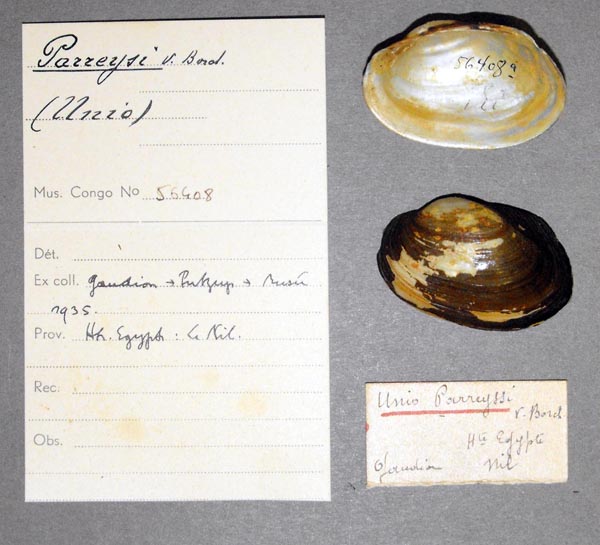 Parreysi v. Bord.
(Unio)
Mus. Congo No 56408
Dét.
Ex coll. Gaudion → Putzeys → Musée
1935.
Prov. Hte. Egypte : Le Nil.
Rec.
Obs.
56408a
Unio Parreyssi
v. Bord
Hte Egypte
Gaudion Nil